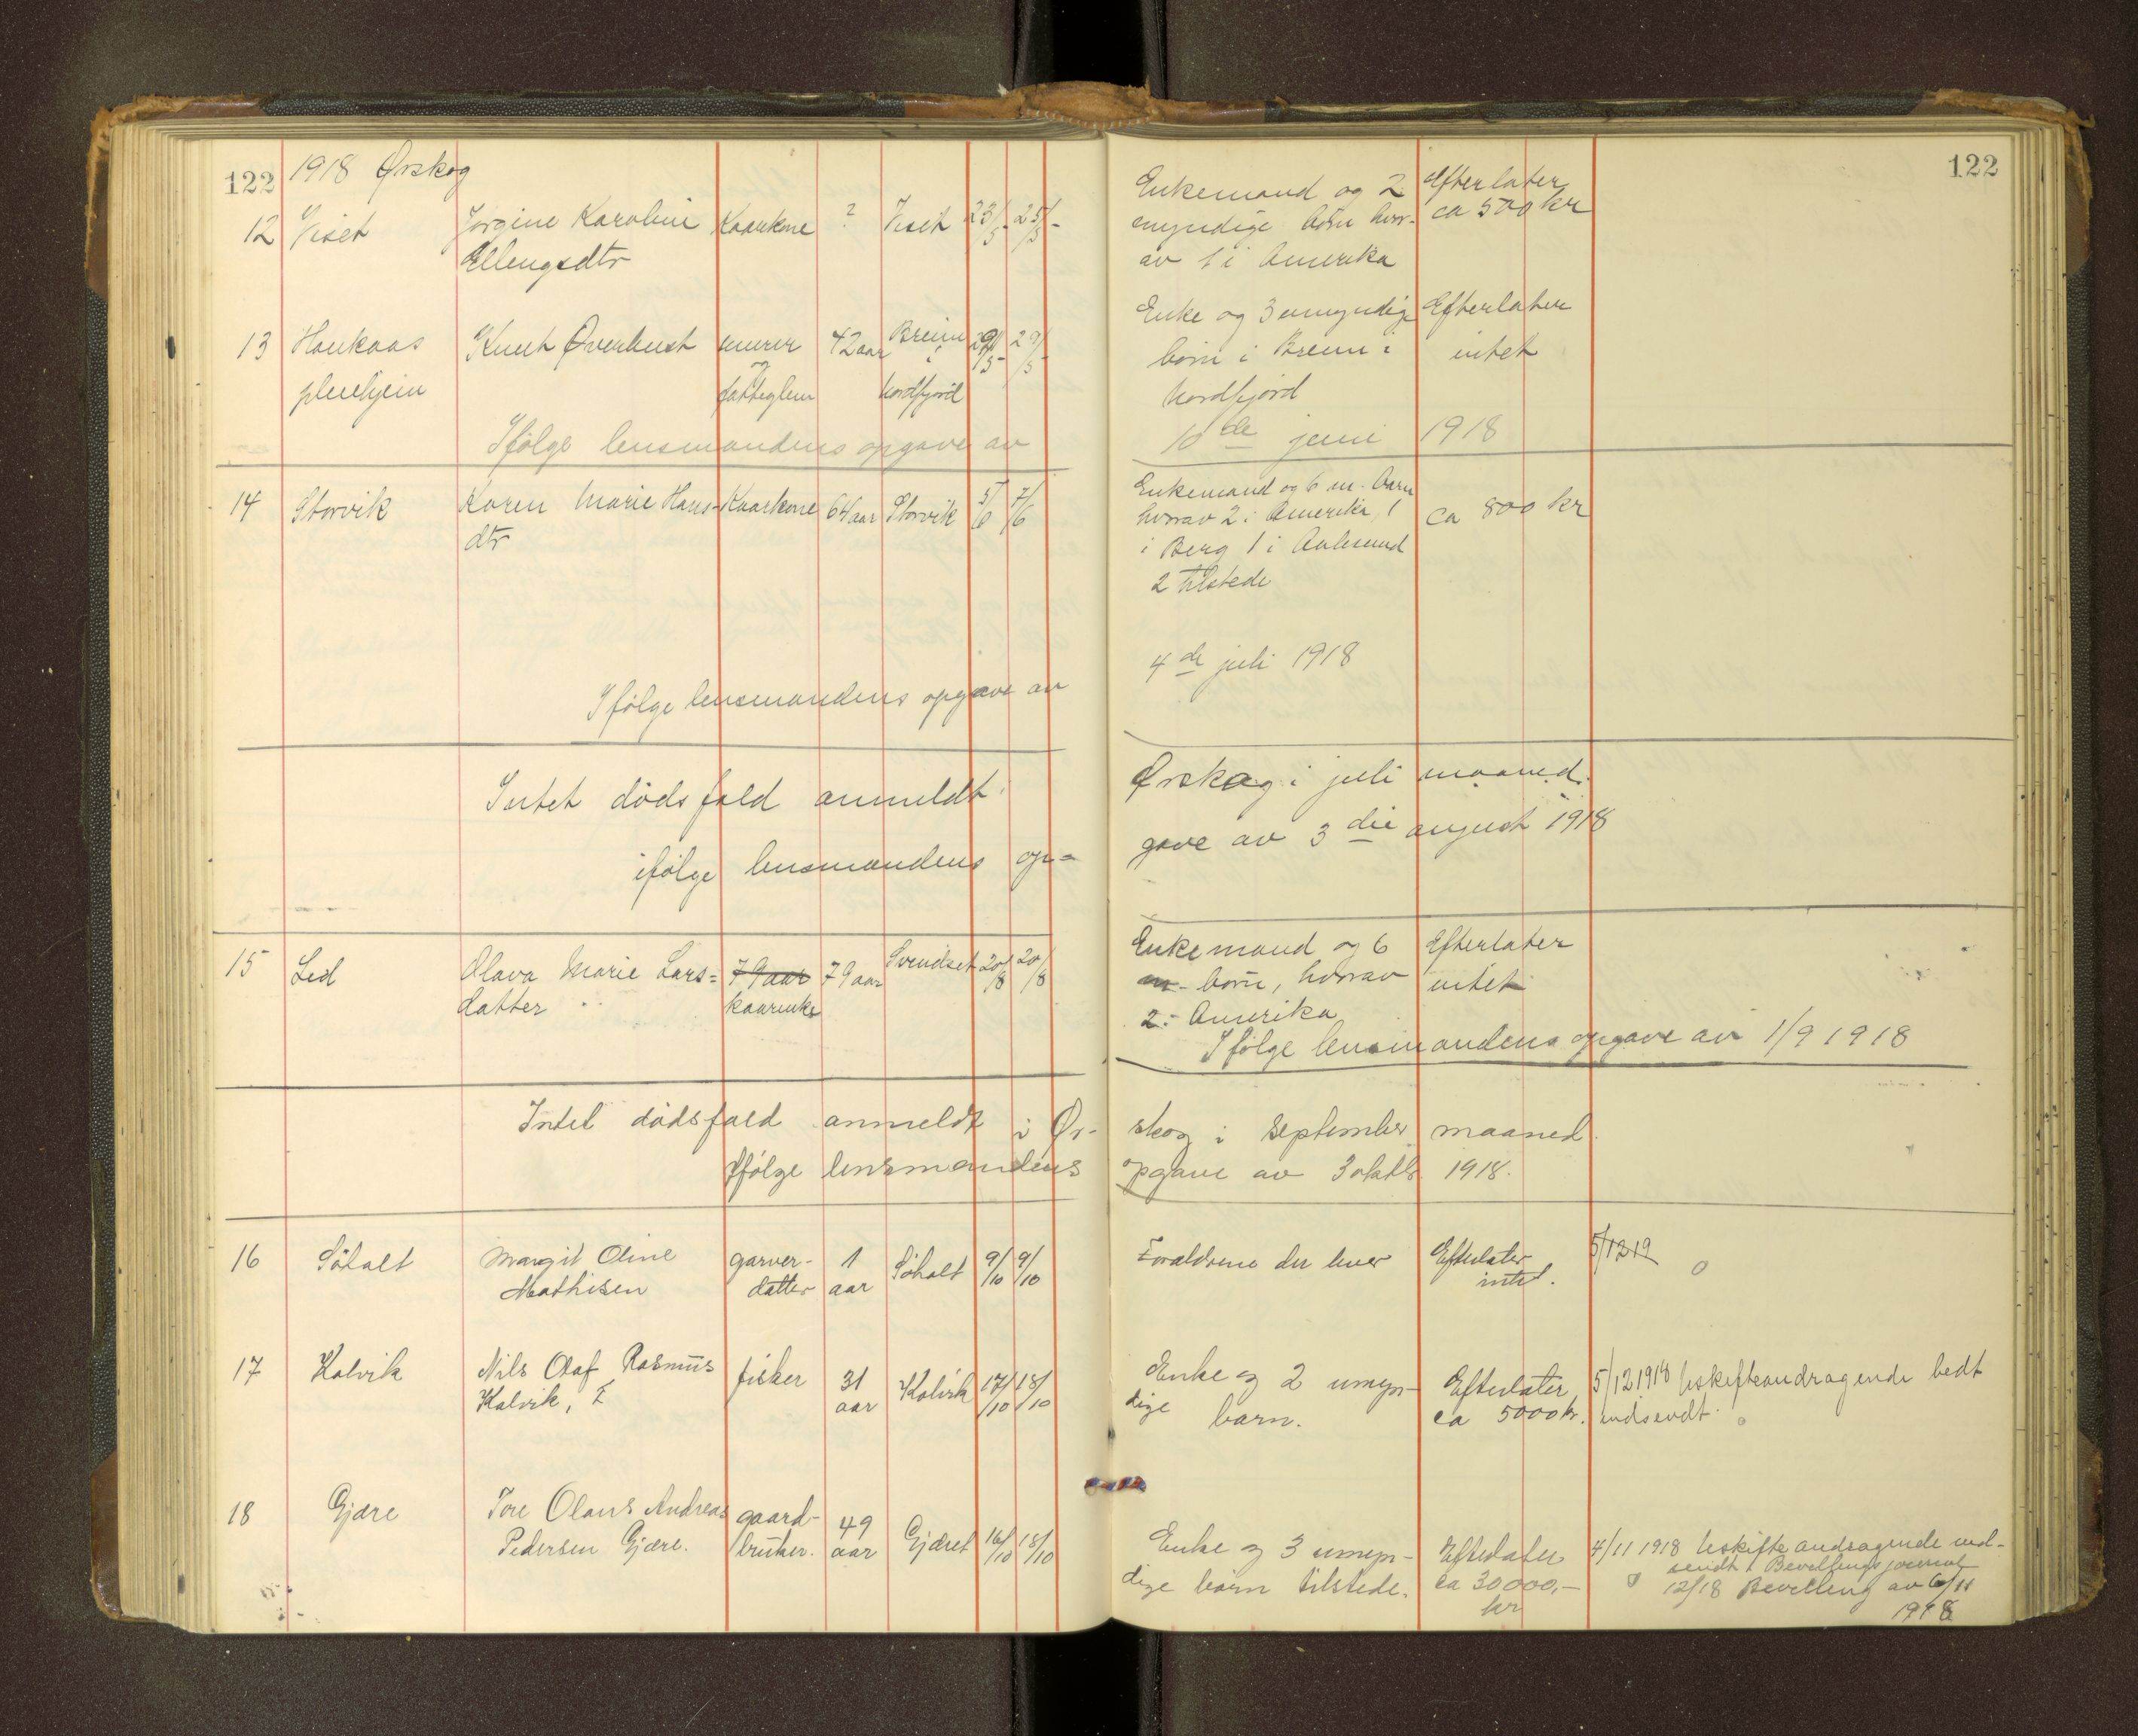 122
1918 Ørskog
12 Viset Jørgine Karoline Kaarkone ? Viset 23/5 - 25/5 -
Ellengsdtr
13 Haukaas Knut Øverhust murer 42 aar Breim 29/5 - 29/5 -
pleiehjem og i
fattiglem Nordfjord
Ifølge lensmandens opgave av
14 Storvik Karen Marie Hans- Kaarkone 64 aar Storvik 5/6 7/6
dtr
Ifølge lensmandens opgave av
Intet dødsfald anmeldt i
ifølge lensmandens op=
15 Lid Olava Marie Lars= 79 aar 79 aar Svendset 20/8 20/8
datter kaarenke
Intet dødsfald anmeldt i Ør-
Ifølge lensmandens
16 Søholt Margit Oline garver- 1 Søholt 9/10 9/10
Mathisen datter aar
17 Kalvik Nils Olaf Rasmus fisker 31 Kalvik 17/10 18/10
Kalvik, aar
18 Gjære Tore Olaus Andreas gaard- 49 Gjæret 16/10 18/10
Pedersen Gjære. bruker. aar
122
Enkemand og 2 Efterlater
myndige børn hvor- ca 500 kr
av 1 i Amerika
Enke og 3 umyndige Efterlater
børn i Breim i intet
Nordfjord
10de juni 1918
Enkemand og 6 m. barn
hvorav 2 i Amerika, 1 ca 800 kr
i Berg 1 i Aalesund
2 tilstede
4de juli 1918
Ørskog i juli maaned.
gave av 3die august 1918
Enkemand og 6 Efterlater
m. børn, hvorav intet
2 i Amerika
Ifølge lensmandens opgave av 1/9 1918
skog i september maaned.
opgave av 3 oktbr. 1918.
Forældrene der lever Efterlater 5/12 19
intet. 0
Enke og 2 umyn- Efterlater 5/12 1918 uskifteandragende bedt
dige barn. ca 5000 kr. indsendt. 0
Enke og 3 umyn- Efterlater 4/11 1918 Uskifte andragende ind-
sendt. Bevillings journal
dige børn tilstede. ca 30000,- 0 12/18 Bevilling av 6/11
kr 1918